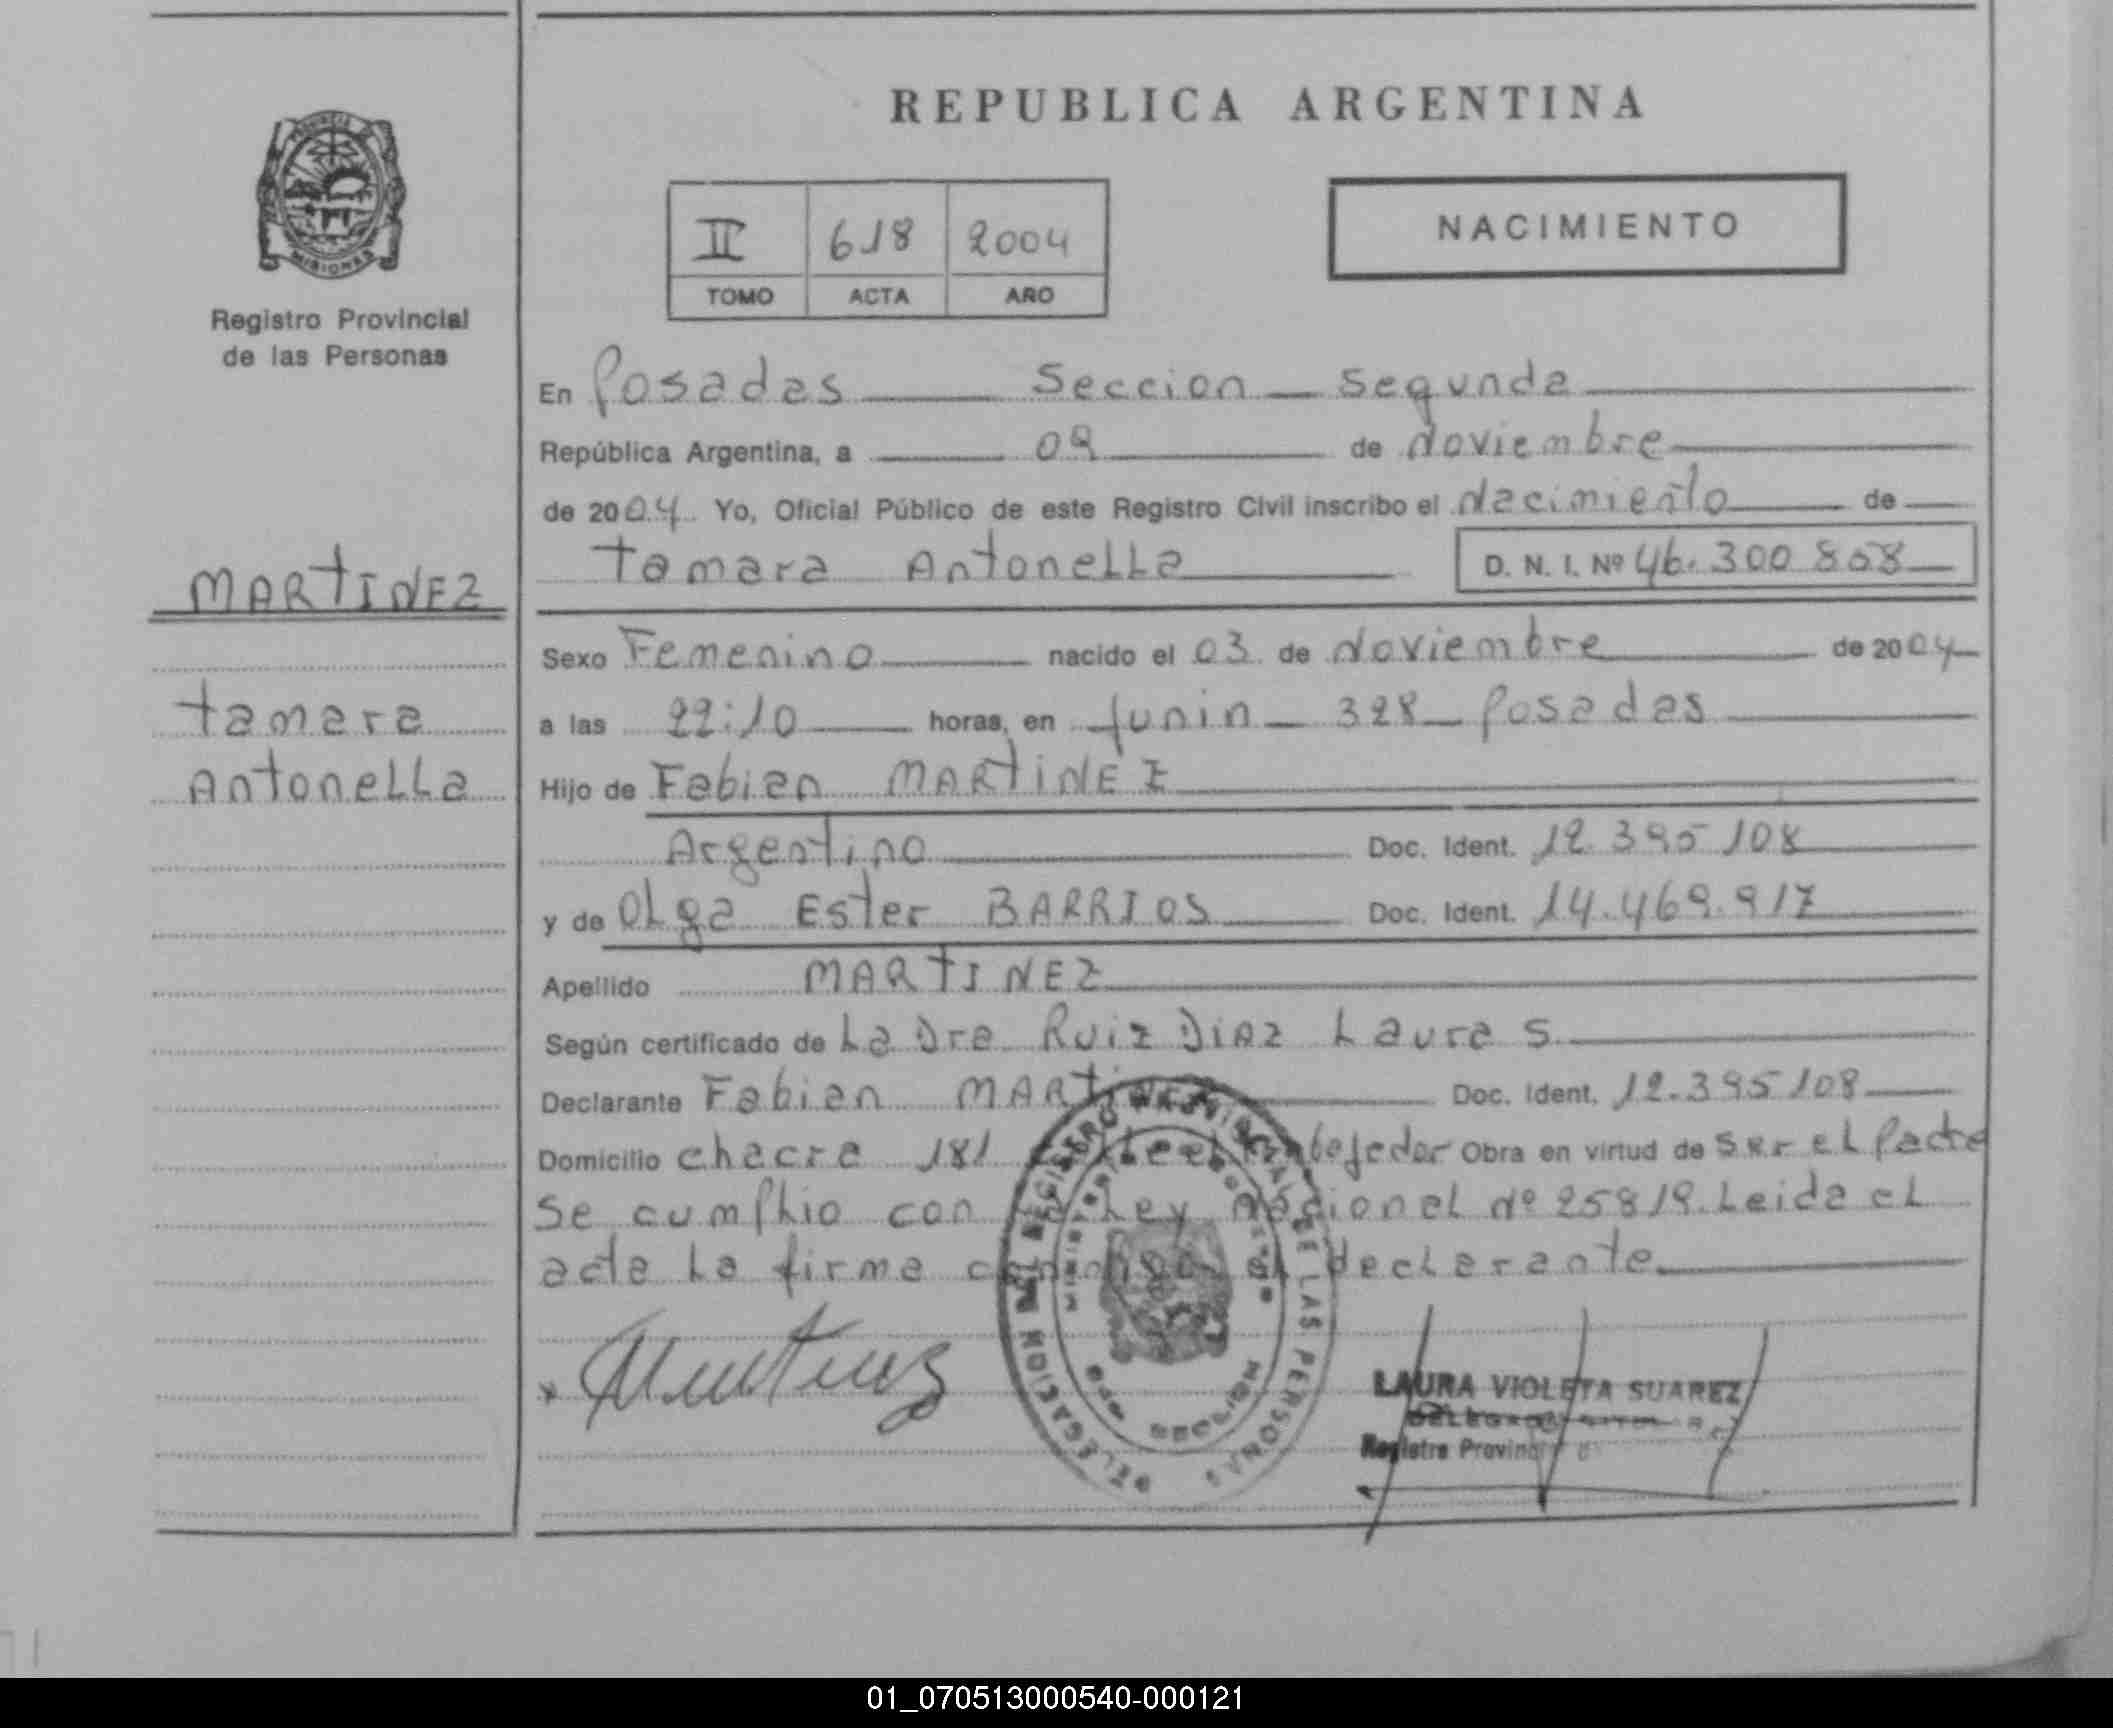 REPUBLICA ARGENTINA
PROVINCIA DE
MISIONES
Registro Provincial
de las Personas
II 618 2004
TOMO ACTA AÑO
NACIMIENTO
En Posadas Seccion Segunda
República Argentina, a 09 de Noviembre
de 2004 Yo, Oficial Público de este Registro Civil inscribo el Nacimiento de
MARTINEZ
Tamara Antonella D. N. I. Nº 46.300.808
Sexo Femenino nacido el 03 de Noviembre de 2004
Tamara
a las 22:10 horas, en Junin 328 Posadas
Antonella
Hijo de Fabian MARTINEZ
Argentino Doc. Ident. 12.395.108
y de Olga Ester BARRIOS Doc. Ident. 14.469.917
Apellido MARTINEZ
Según certificado de La Dra Ruiz Diaz Laura S.
Declarante Fabian MARTINEZ Doc. Ident. 12.395.108
Domicilio chacra 181 Obra en virtud de Ser el Padre
Se cumplio con la Ley Nacional Nº 25819. Leida el
acta La firma conmigo el declarante
LAURA VIOLETA SUAREZ
Registro
DELEGACION DEL REGISTRO PROVINCIAL DE LAS PERSONAS
SECCION
01_070513000540-000121